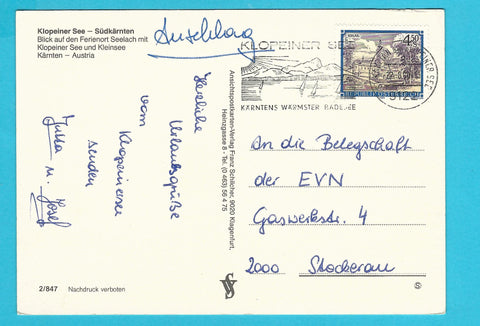 Klopeiner See – Südkärnten
Blick auf den Ferienort Seelach mit
Klopeiner See und Kleinsee
Kärnten – Austria
Anschlag
KLOPEINER SEE
KÄRNTENS WÄRMSTER BADESEE
4,50
REPUBLIK ÖSTERREICH
Herzliche
Urlaubsgrüße
vom
Klopeinersee
senden
Jutta
u. Josef
Ansichtspostkarten-Verlag Franz Schilcher, 9020 Klagenfurt,
Heinzgasse 8 - Tel. (0 463) 56 4 75
An die Belegschaft
der EVN
Gaswerkstr. 4
2000 Stockerau
2/847 Nachdruck verboten